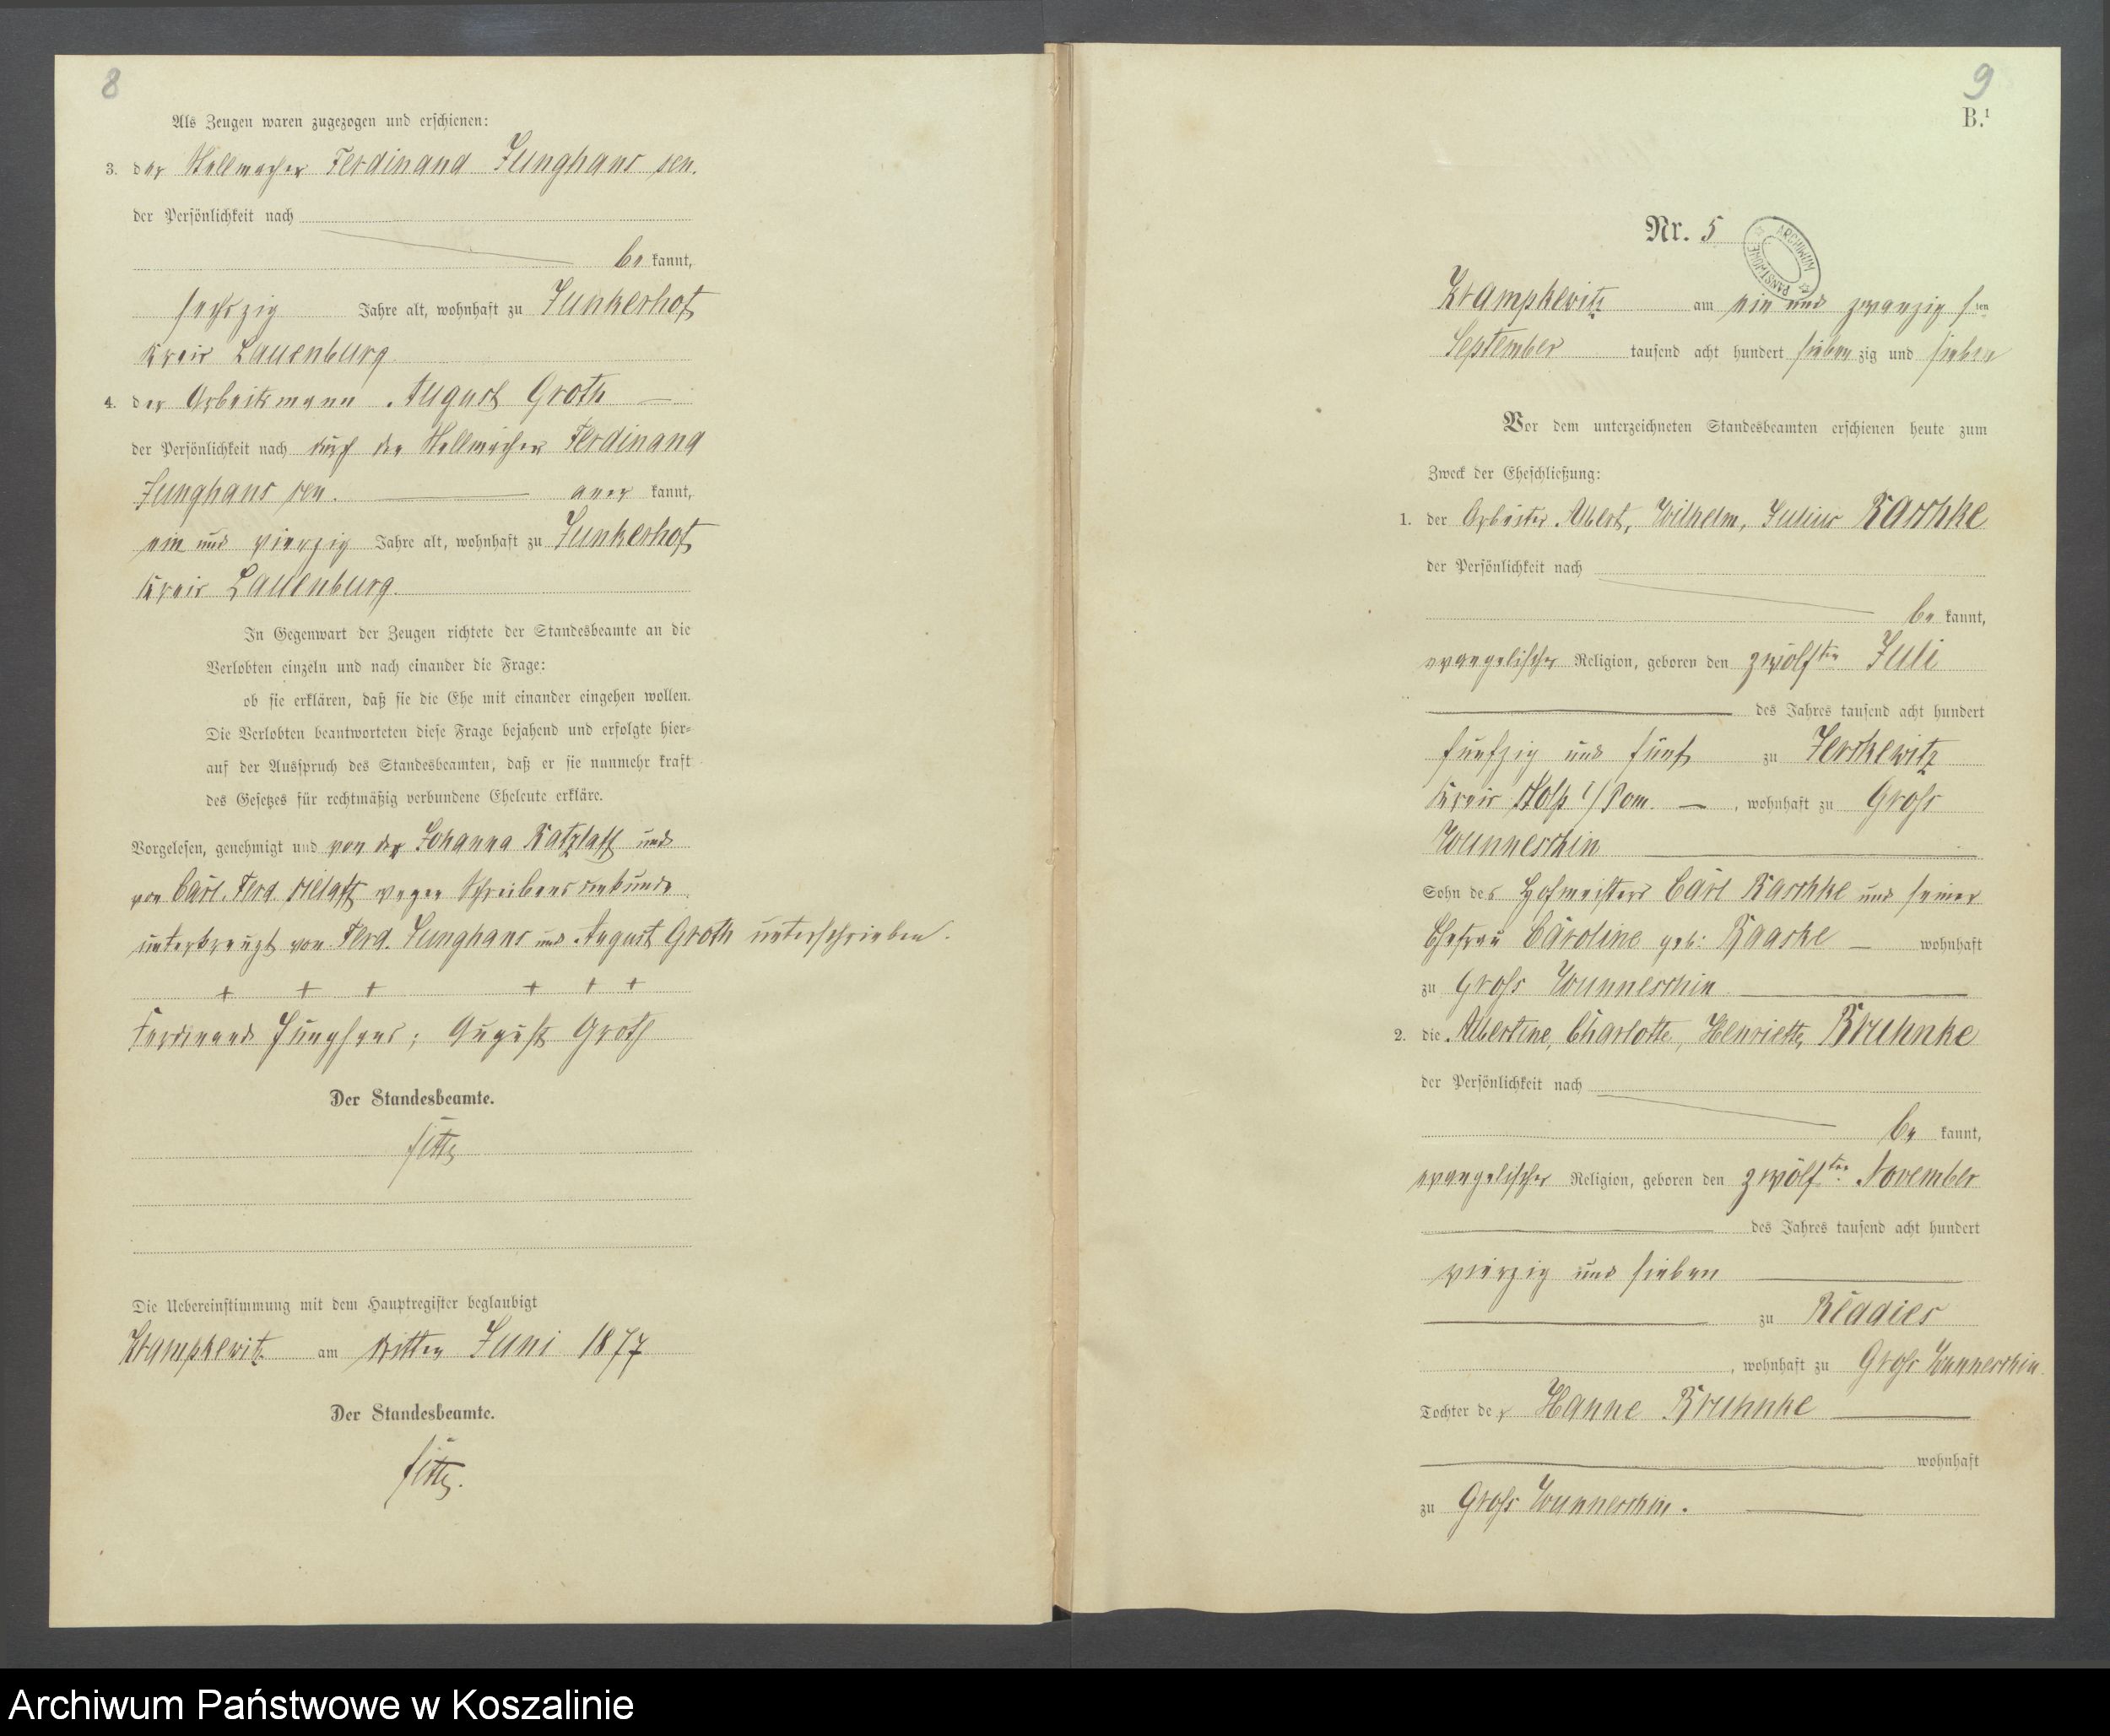 8
Als Zeugen waren zugezogen und erschienen:
3. der Stellmacher Ferdinand Junghans sen.
der Persönlichkeit nach
be kannt,
sechszig Jahre alt, wohnhaft zu Junkerhof
Kreis Lauenburg
4. der Arbeitsmann August Groth
der Persönlichkeit nach durch den Stellmacher Ferdinand
Junghans sen. aner kannt,
ein und vierzig Jahre alt, wohnhaft zu Junkerhof
Kreis Lauenburg.
In Gegenwart der Zeugen richtete der Standesbeamte an die
Verlobten einzeln und nach einander die Frage:
ob sie erklären, daß sie die Ehe mit einander eingehen wollen.
Die Verlobten beantworteten diese Frage bejahend und erfolgte hier-
auf der Ausspruch des Standesbeamten, daß er sie nunmehr kraft
des Gesetzes für rechtmäßig verbundene Eheleute erkläre.
Vorgelesen, genehmigt und von der Johanna Ratzlaff und
von Carl. Ferd. wegen Schreibensunkunde
unterkreuzt von Ferd. Junghans und August Groth unterschrieben.
+ + + + + +
Ferdinand Junghans; August Groth
Der Standesbeamte.
Die Uebereinstimmung mit dem Hauptregister beglaubigt
Krampkewitz am dritten Juni 1877
Der Standesbeamte.
9
B.¹
Nr. 5
ARCHIWUM PAŃSTWOWE
Krampkewitz am ein und zwanzig sten
September tausend acht hundert sieben zig und sieben
Vor dem unterzeichneten Standesbeamten erschienen heute zum
Zweck der Eheschließung:
1. der Arbeiter Albert, Wilhelm, Julius Raschke
der Persönlichkeit nach
be kannt,
evangelischer Religion, geboren den zwölften Juli
des Jahres tausend acht hundert
fünfzig und fünf zu Jerskewitz
Kreis Stolp i/Pom. , wohnhaft zu Gross
Wunneschin
Sohn des Hofmeisters Carl Raschke und seiner
Ehefrau Caroline geb: Raaske wohnhaft
zu Gross Wunneschin
2. die Albertine, Charlotte, Henriette, Bruhnke
der Persönlichkeit nach
be kannt,
evangelischer Religion, geboren den zwölften November
des Jahres tausend acht hundert
vierzig und sieben
zu
, wohnhaft zu Gross Wunneschin.
Tochter der Hanne Bruhnke
wohnhaft
zu Gross Wunneschin.
Archiwum Państwowe w Koszalinie